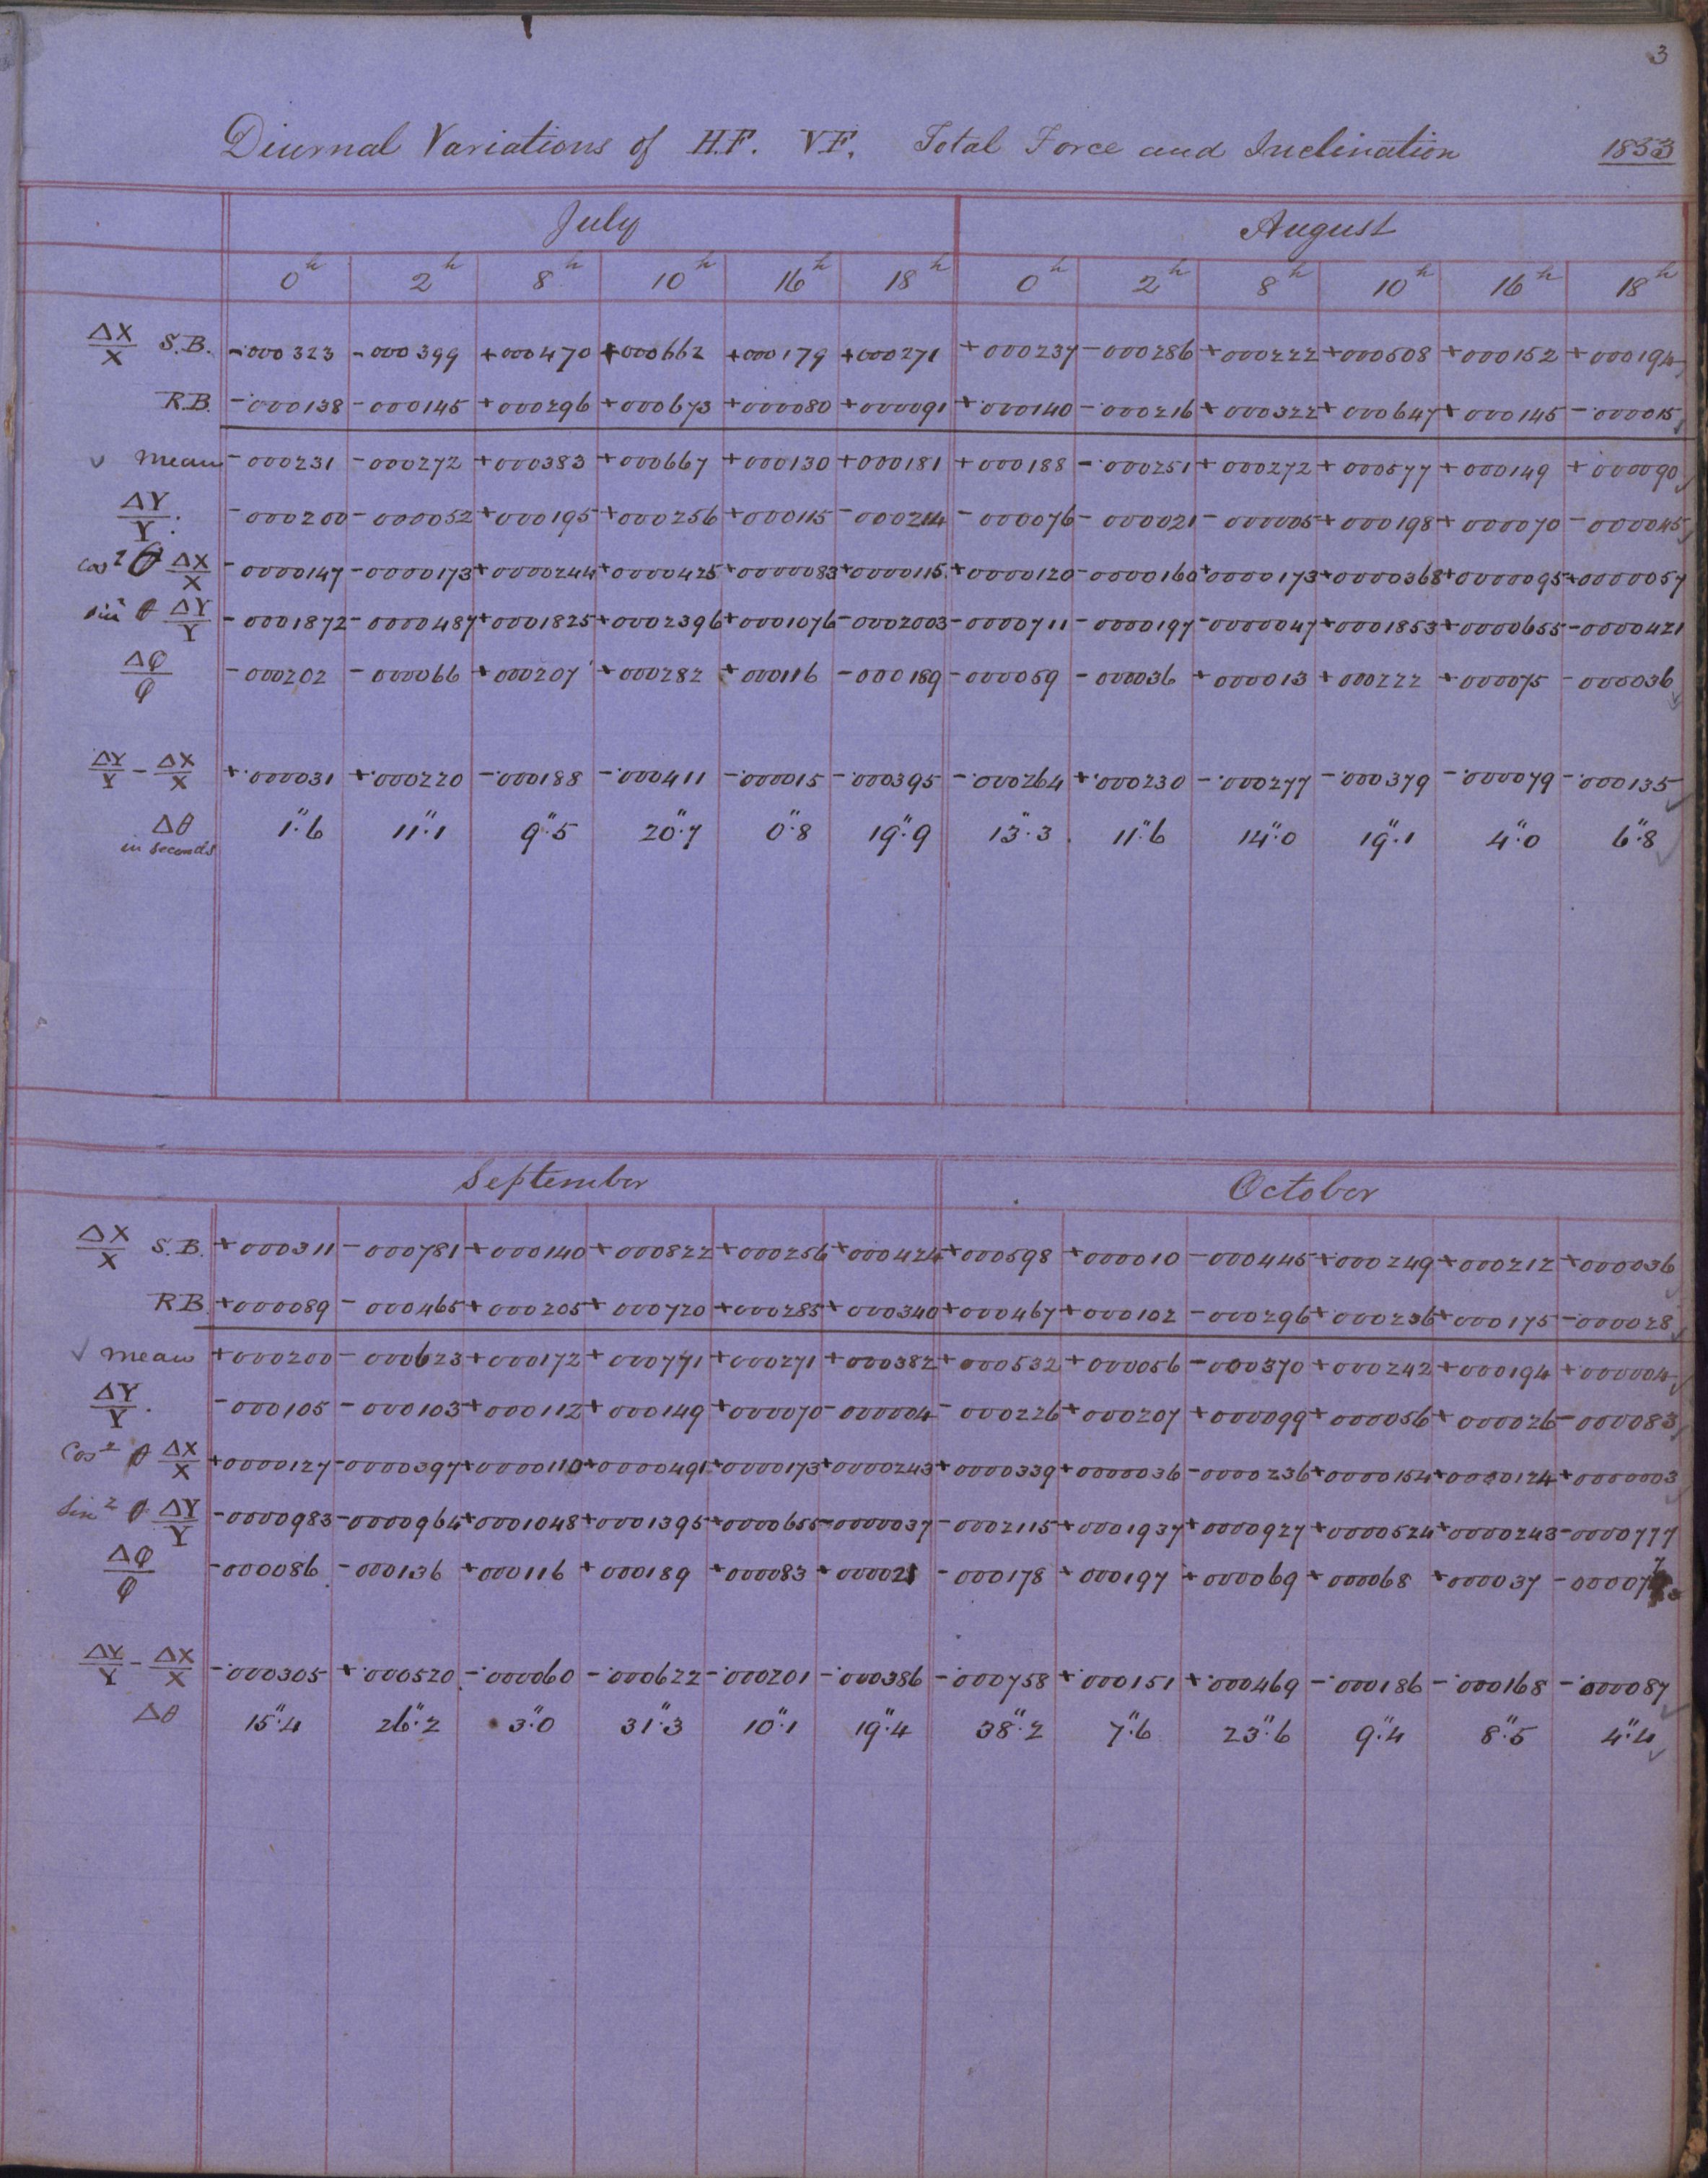 3
Diurnal Variations of H.F. V.F. Total Force and Inclination 1853
July August
0h 2h 8h 10h 16h 18h 0h 2h 8h 10h 16h 18h
ΔX/X S.B. -·000323 -000399 +000470 +000662 +000179 +000271 +000237 -000286 +000222 +000508 +000152 +000194
R.B. -·000138 -000145 +000296 +000673 +000080 +000091 +·000140 -000216 +000322 +000647 +000145 -·000015
✓ Mean -000231 -000272 +000383 +000667 +000130 +000181 +000188 -·000251 +000272 +000577 +000149 +000090
ΔY/Y. -000200 -000052 +000195 +000256 +000115 -000214 -000076 -000021 -000005 +000198 +000070 -000045
cos² θ ΔX/X -0000147 -0000173 +0000244 +0000425 +0000083 +0000115 +0000120 -0000160 +0000173 +0000368 +0000095 +0000057
sin² θ ΔY/Y -0001872 -0000487 +0001825 +0002396 +0001076 -0002003 -0000711 -0000197 -0000047 +0001853 +0000655 -0000421
Δφ/φ -000202 -000066 +000207 +000282 +000116 -000189 -000059 -000036 +000013 +000222 +000075 -000036
ΔY/Y - ΔX/X +·000031 +·000220 -·000188 -·000411 -·000015 -·000395 -·000264 +·000230 -·000277 -·000379 -·000079 -·000135
Δθ in seconds 1".6 11".1 9".5 20".7 0".8 19".9 13".3 11".6 14".0 19".1 4".0 6".8
September October
ΔX/X S.B. +000311 -000781 +000140 +000822 +000256 +000424 +000598 +000010 -000445 +000249 +000212 +000036
R.B. +000089 -000465 +000205 +000720 +000285 +000340 +000467 +000102 -000296 +000236 +000175 -000028
✓ Mean +000200 -000623 +000172 +000771 +000271 +000382 +000532 +000056 -000370 +000242 +000194 +000004
ΔY/Y. -000105 -000103 +000112 +000149 +000070 -000004 -000226 +000207 +000099 +000056 +000026 -000083
Cos² θ ΔX/X +0000127 -0000397 +0000110 +0000491 +0000173 +0000243 +0000339 +0000036 -0000236 +0000154 +0000124 +0000003
Sin² θ ΔY/Y -0000983 -0000964 +0001048 +0001395 +0000655 -0000037 -0002115 +0001937 +0000927 +0000524 +0000243 -0000777
Δφ/φ -000086 -000136 +000116 +000189 +000083 +000021 -000178 +000197 +000069 +000068 +000037 -000077
ΔY/Y - ΔX/X -·000305 +·000520 -·000060 -·000622 -·000201 -·000386 -·000758 +·000151 +·000469 -·000186 -·000168 -·000087
Δθ 15".4 26".2 3".0 31".3 10".1 19".4 38".2 7".6 23".6 9".4 8".5 4".4